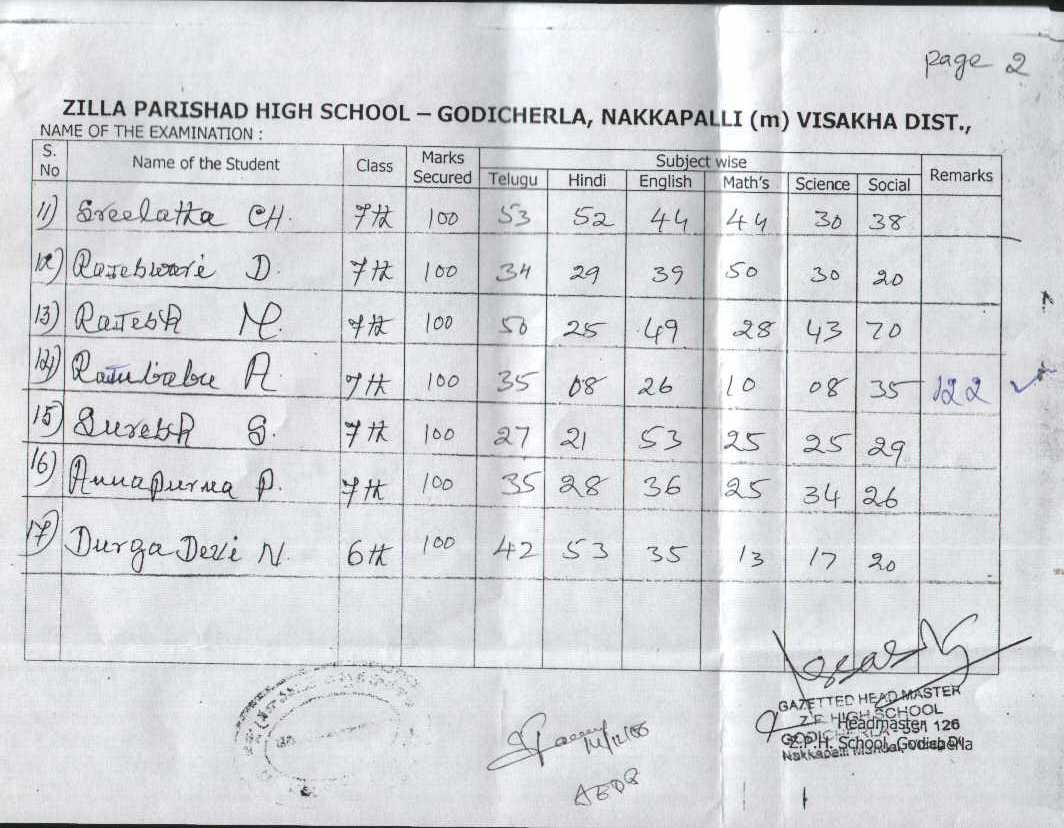 page 2
ZILLA PARISHAD HIGH SCHOOL – GODICHERLA, NAKKAPALLI (m) VISAKHA DIST.,
NAME OF THE EXAMINATION :
S. No Name of the Student Class Marks Secured Subject wise Remarks
Telugu Hindi English Math's Science Social
11) Sreelatha CH. 7th 100 53 52 44 44 30 38
12) Rajeswari D. 7th 100 34 29 39 50 30 20
13) Rajesh M. 7th 100 50 25 49 28 43 70
14) Rajubabu A 7th 100 35 08 26 10 08 35 122
15) Suresh S. 7th 100 27 21 53 25 25 29
16) Annapurna P. 7th 100 35 28 36 25 34 26
17) Durga Devi N. 6th 100 42 53 35 13 17 20
GAZETTED HEAD MASTER
Z.P. HIGH SCHOOL
Headmaster
GODICHERLA - 531 126
Z.P.H. School, Godicherla
Nakkapalli Mandal,